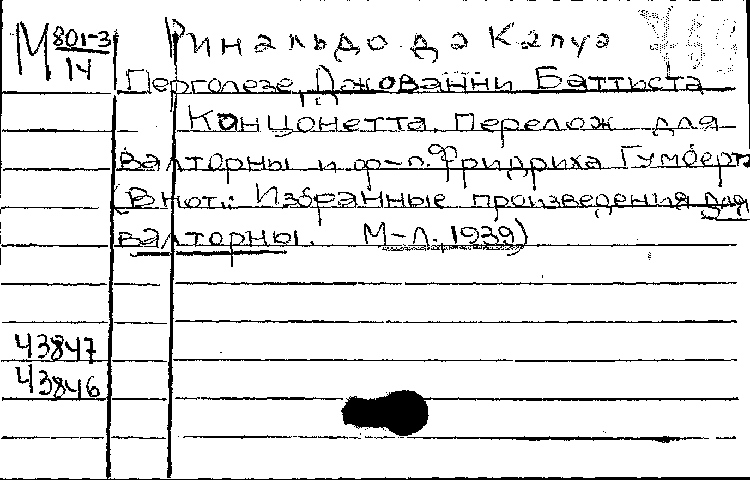 М 801-3/14 Ринальдо да Капуа
Перголезе, Джованни Баттиста
Канцонетта. Перелож для
валторны и ф-п. Фридриха Гумберта
(В нот.: Избранные произведения для
валторны. М-Л. 1939)
43847
43846